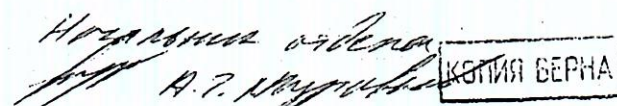 Начальник отдела
А.Г. КОПИЯ ВЕРНА